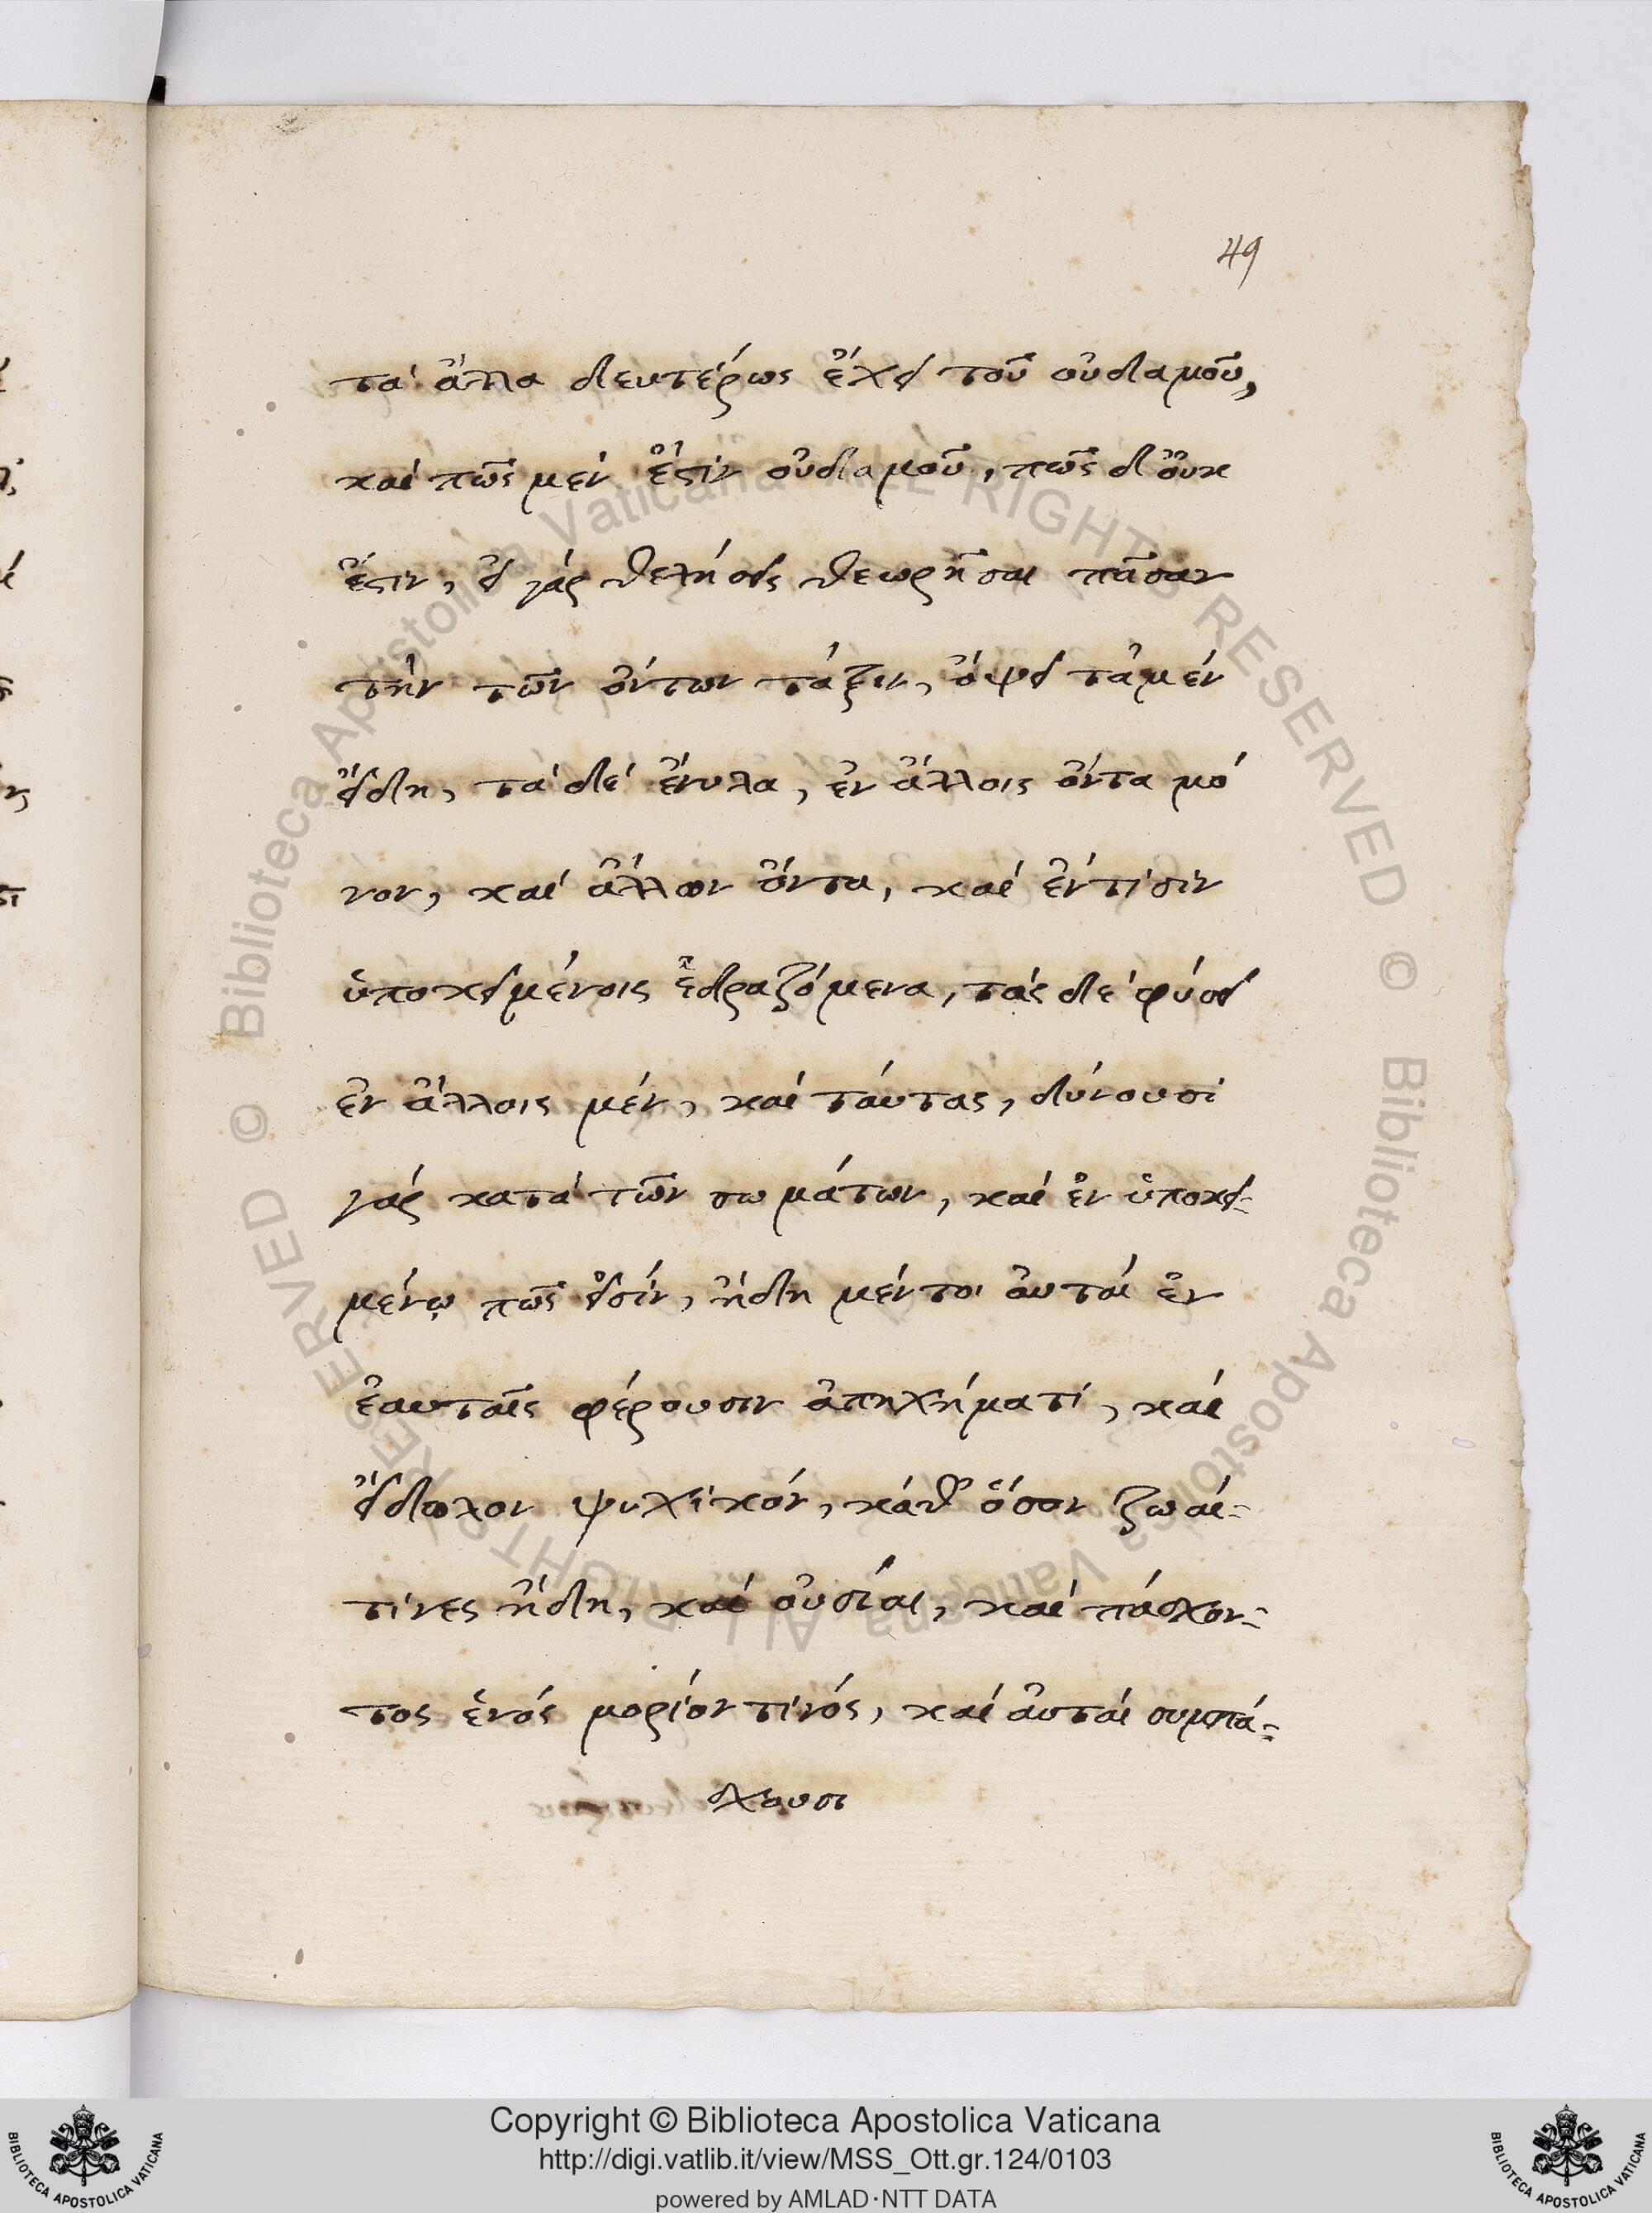 49
τὰ ἄλλα δευτέρως ἔχει τοῦ οὐδαμοῦ,
καὶ πῶς μέν ἔστιν οὐδαμοῦ, πῶς δ' οὐκ
ἔστιν, εἰ γάρ θελήσεις θεωρῆσαι πᾶσαν
τὴν τῶν ὄντων τάξιν, ὄψει τὰ μέν
εἴδη, τὰ δὲ ἔνυλα, ἐν ἄλλοις ὄντα μό
νον, καὶ ἄλλων ὄντα, καὶ ἐν τισὶν
ὑποκειμένοις ἑδραζόμενα, τὰς δὲ φύσει
ἐν ἄλλοις μέν, καὶ ταύτας, δύνουσι
γάρ κατὰ τῶν σωμάτων, καὶ ἐν ὑποκει-
μένῳ πῶς εἰσίν, ἤδη μέντοι αὐταὶ ἐν
ἑαυταῖς φέρουσιν ἀπηχήματι, καὶ
εἴδωλον ψυχικόν, καθ' ὅσον ζωαί-
τινες ἤδη, καὶ οὐσίαι, καὶ πάσχον-
τος ἑνός μορίον τινός, καὶ αὐταὶ συμπά-
σχουσι
Copyright © Biblioteca Apostolica Vaticana
http://digi.vatlib.it/view/MSS_Ott.gr.124/0103
powered by AMLAD·NTT DATA
BIBLIOTECA APOSTOLICA VATICANA
BIBLIOTECA APOSTOLICA VATICANA
© Biblioteca Apostolica Vaticana ALL RIGHTS RESERVED © Biblioteca Apostolica Vaticana ALL RIGHTS RESERVED